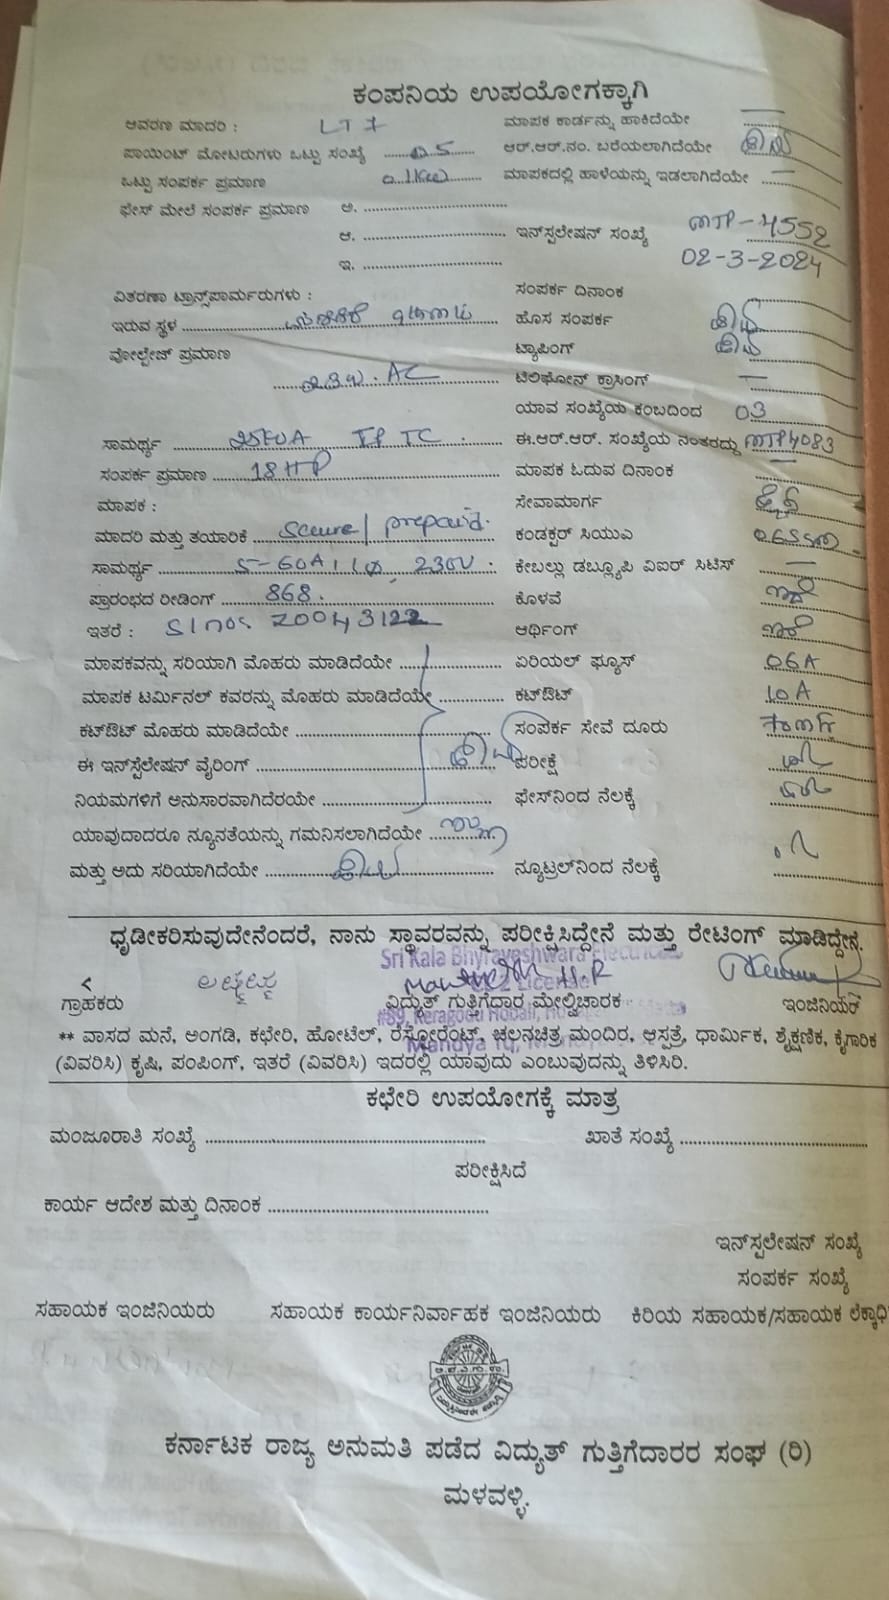 ಕಂಪನಿಯ ಉಪಯೋಗಕ್ಕಾಗಿ
ಆವರಣ ಮಾದರಿ : LT 7
ಮಾಪಕ ಕಾರ್ಡನ್ನು ಹಾಕಿದೆಯೇ —
ಪಾಯಿಂಟ್ ಮೋಟರುಗಳು ಒಟ್ಟು ಸಂಖ್ಯೆ 05
ಆರ್.ಆರ್.ನಂ. ಬರೆಯಲಾಗಿದೆಯೇ
ಒಟ್ಟು ಸಂಪರ್ಕ ಪ್ರಮಾಣ 0.1kw
ಮಾಪಕದಲ್ಲಿ ಹಾಳೆಯನ್ನು ಇಡಲಾಗಿದೆಯೇ —
ಫೇಸ್ ಮೇಲೆ ಸಂಪರ್ಕ ಪ್ರಮಾಣ ಅ.
ಆ.
ಇನ್‌ಸ್ಟಲೇಷನ್ ಸಂಖ್ಯೆ MTP-4552
ಇ.
02-3-2024
ವಿತರಣಾ ಟ್ರಾನ್ಸ್‌ಪಾರ್ಮರುಗಳು :
ಸಂಪರ್ಕ ದಿನಾಂಕ
ಇರುವ ಸ್ಥಳ
ಹೊಸ ಸಂಪರ್ಕ
ವೋಲ್ಟೇಜ್ ಪ್ರಮಾಣ
ಟ್ಯಾಪಿಂಗ್
230V. AC
ಟೆಲಿಫೋನ್ ಕ್ರಾಸಿಂಗ್ —
ಯಾವ ಸಂಖ್ಯೆಯ ಕಂಬದಿಂದ 03
ಸಾಮರ್ಥ್ಯ 25KVA TC
ಈ.ಆರ್.ಆರ್. ಸಂಖ್ಯೆಯ ನಂತರದ್ದು MTP4083
ಸಂಪರ್ಕ ಪ್ರಮಾಣ 18HP
ಮಾಪಕ ಓದುವ ದಿನಾಂಕ —
ಮಾಪಕ :
ಸೇವಾಮಾರ್ಗ
ಮಾದರಿ ಮತ್ತು ತಯಾರಿಕೆ Secure/ prepaid.
ಕಂಡಕ್ಟರ್ ಸಿಯುಎ
ಸಾಮರ್ಥ್ಯ 5-60A, 1φ, 230V.
ಕೇಬಲ್ಲು ಡಬ್ಲ್ಯೂಪಿ ವಿಐರ್ ಸಿಟಿಸ್ —
ಪ್ರಾರಂಭದ ರೀಡಿಂಗ್ 868.
ಕೊಳವೆ
ಇತರೆ : Slno: Z0043122
ಆರ್ಥಿಂಗ್
ಮಾಪಕವನ್ನು ಸರಿಯಾಗಿ ಮೊಹರು ಮಾಡಿದೆಯೇ
ಏರಿಯಲ್ ಫ್ಯೂಸ್ 06A
ಮಾಪಕ ಟರ್ಮಿನಲ್ ಕವರನ್ನು ಮೊಹರು ಮಾಡಿದೆಯೇ
ಕಟ್‌ಔಟ್ 10A
ಕಟ್‌ಔಟ್ ಮೊಹರು ಮಾಡಿದೆಯೇ
ಸಂಪರ್ಕ ಸೇವೆ ದೂರು
ಈ ಇನ್‌ಸ್ಟೆಲೇಷನ್ ವೈರಿಂಗ್
ಪರೀಕ್ಷೆ
ನಿಯಮಗಳಿಗೆ ಅನುಸಾರವಾಗಿದೆರಯೇ
ಫೇಸ್‌ನಿಂದ ನೆಲಕ್ಕೆ
ಯಾವುದಾದರೂ ನ್ಯೂನತೆಯನ್ನು ಗಮನಿಸಲಾಗಿದೆಯೇ
ಮತ್ತು ಅದು ಸರಿಯಾಗಿದೆಯೇ
ನ್ಯೂಟ್ರಲ್‌ನಿಂದ ನೆಲಕ್ಕೆ
ಧೃಡೀಕರಿಸುವುದೇನೆಂದರೆ, ನಾನು ಸ್ಥಾವರವನ್ನು ಪರೀಕ್ಷಿಸಿದ್ದೇನೆ ಮತ್ತು ರೇಟಿಂಗ್ ಮಾಡಿದ್ದೇನೆ.
Sri Kala Bhyraveshwara Electrical
ಗ್ರಾಹಕರು ವಿದ್ಯುತ್ ಗುತ್ತಿಗೆದಾರ ಮೇಲ್ವಿಚಾರಕ ಇಂಜಿನಿಯರ್
#89, Keragodu Hobali,
** ವಾಸದ ಮನೆ, ಅಂಗಡಿ, ಕಛೇರಿ, ಹೋಟೆಲ್, ರೆಸ್ಟೋರೆಂಟ್, ಚಲನಚಿತ್ರ ಮಂದಿರ, ಆಸ್ಪತ್ರೆ, ಧಾರ್ಮಿಕ, ಶೈಕ್ಷಣಿಕ, ಕೈಗಾರಿಕ
Mandya Tq,
(ವಿವರಿಸಿ) ಕೃಷಿ, ಪಂಪಿಂಗ್, ಇತರೆ (ವಿವರಿಸಿ) ಇದರಲ್ಲಿ ಯಾವುದು ಎಂಬುವುದನ್ನು ತಿಳಿಸಿರಿ.
ಕಛೇರಿ ಉಪಯೋಗಕ್ಕೆ ಮಾತ್ರ
ಮಂಜೂರಾತಿ ಸಂಖ್ಯೆ ಖಾತೆ ಸಂಖ್ಯೆ
ಪರೀಕ್ಷಿಸಿದೆ
ಕಾರ್ಯ ಆದೇಶ ಮತ್ತು ದಿನಾಂಕ
ಇನ್‌ಸ್ಟಲೇಷನ್ ಸಂಖ್ಯೆ
ಸಂಪರ್ಕ ಸಂಖ್ಯೆ
ಸಹಾಯಕ ಇಂಜಿನಿಯರು ಸಹಾಯಕ ಕಾರ್ಯನಿರ್ವಾಹಕ ಇಂಜಿನಿಯರು ಕಿರಿಯ ಸಹಾಯಕ/ಸಹಾಯಕ ಲೆಕ್ಕಾಧಿ
ಕರ್ನಾಟಕ ರಾಜ್ಯ ಅನುಮತಿ ಪಡೆದ ವಿದ್ಯುತ್ ಗುತ್ತಿಗೆದಾರರ ಸಂಘ (ರಿ)
ಮಳವಳ್ಳಿ.